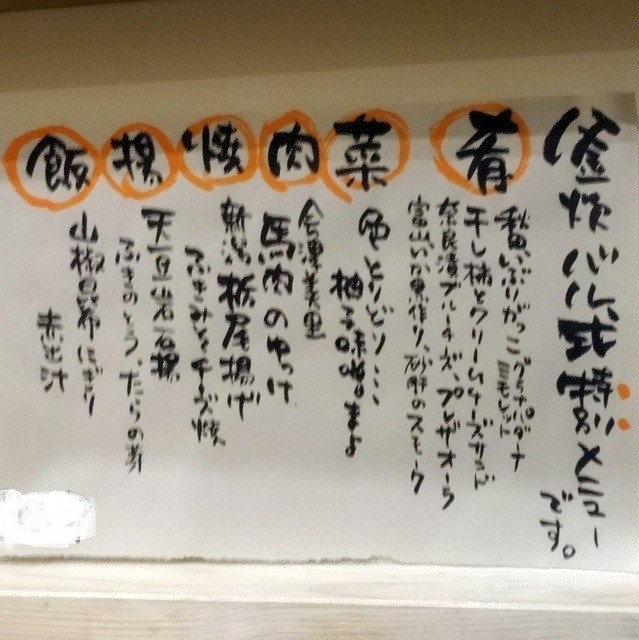 バル式特別メニューです。
肴
秋田いぶりがっこグラナパダーナ
ミモレット
干し柿とクリームチーズサンド
奈良漬ブルーチーズ、プレザオーラ
富山いか黒作り、砂肝のスモーク
菜
色とりどり...
柚子味噌まよ
肉
会津美里
馬肉のゆっけ
焼
新潟栃尾揚げ
ふきみそチーズ焼
揚
天豆岩石揚
ふきのとう たらの芽
飯
山椒昆布にぎり
赤出汁